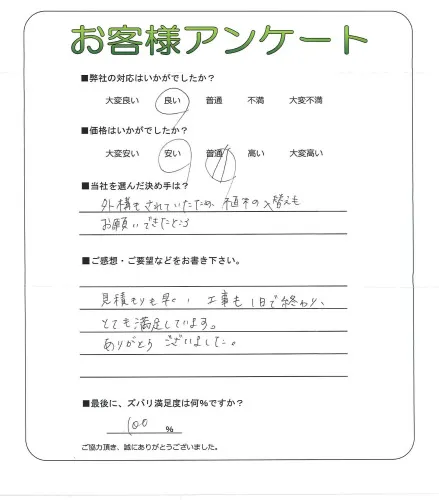 お客様アンケート
■弊社の対応はいかがでしたか?
大変良い 良い 普通 不満 大変不満
■価格はいかがでしたか?
大変安い 安い 普通 高い 大変高い
■当社を選んだ決め手は?
外構もされていたため、植木の入替えも
お願いできたところ
■ご感想・ご要望などをお書き下さい。
見積もりも早い、工事も1日で終わり、
とても満足しています。
ありがとうございました。
■最後に、ズバリ満足度は何%ですか?
100 %
ご協力頂き、誠にありがとうございました。